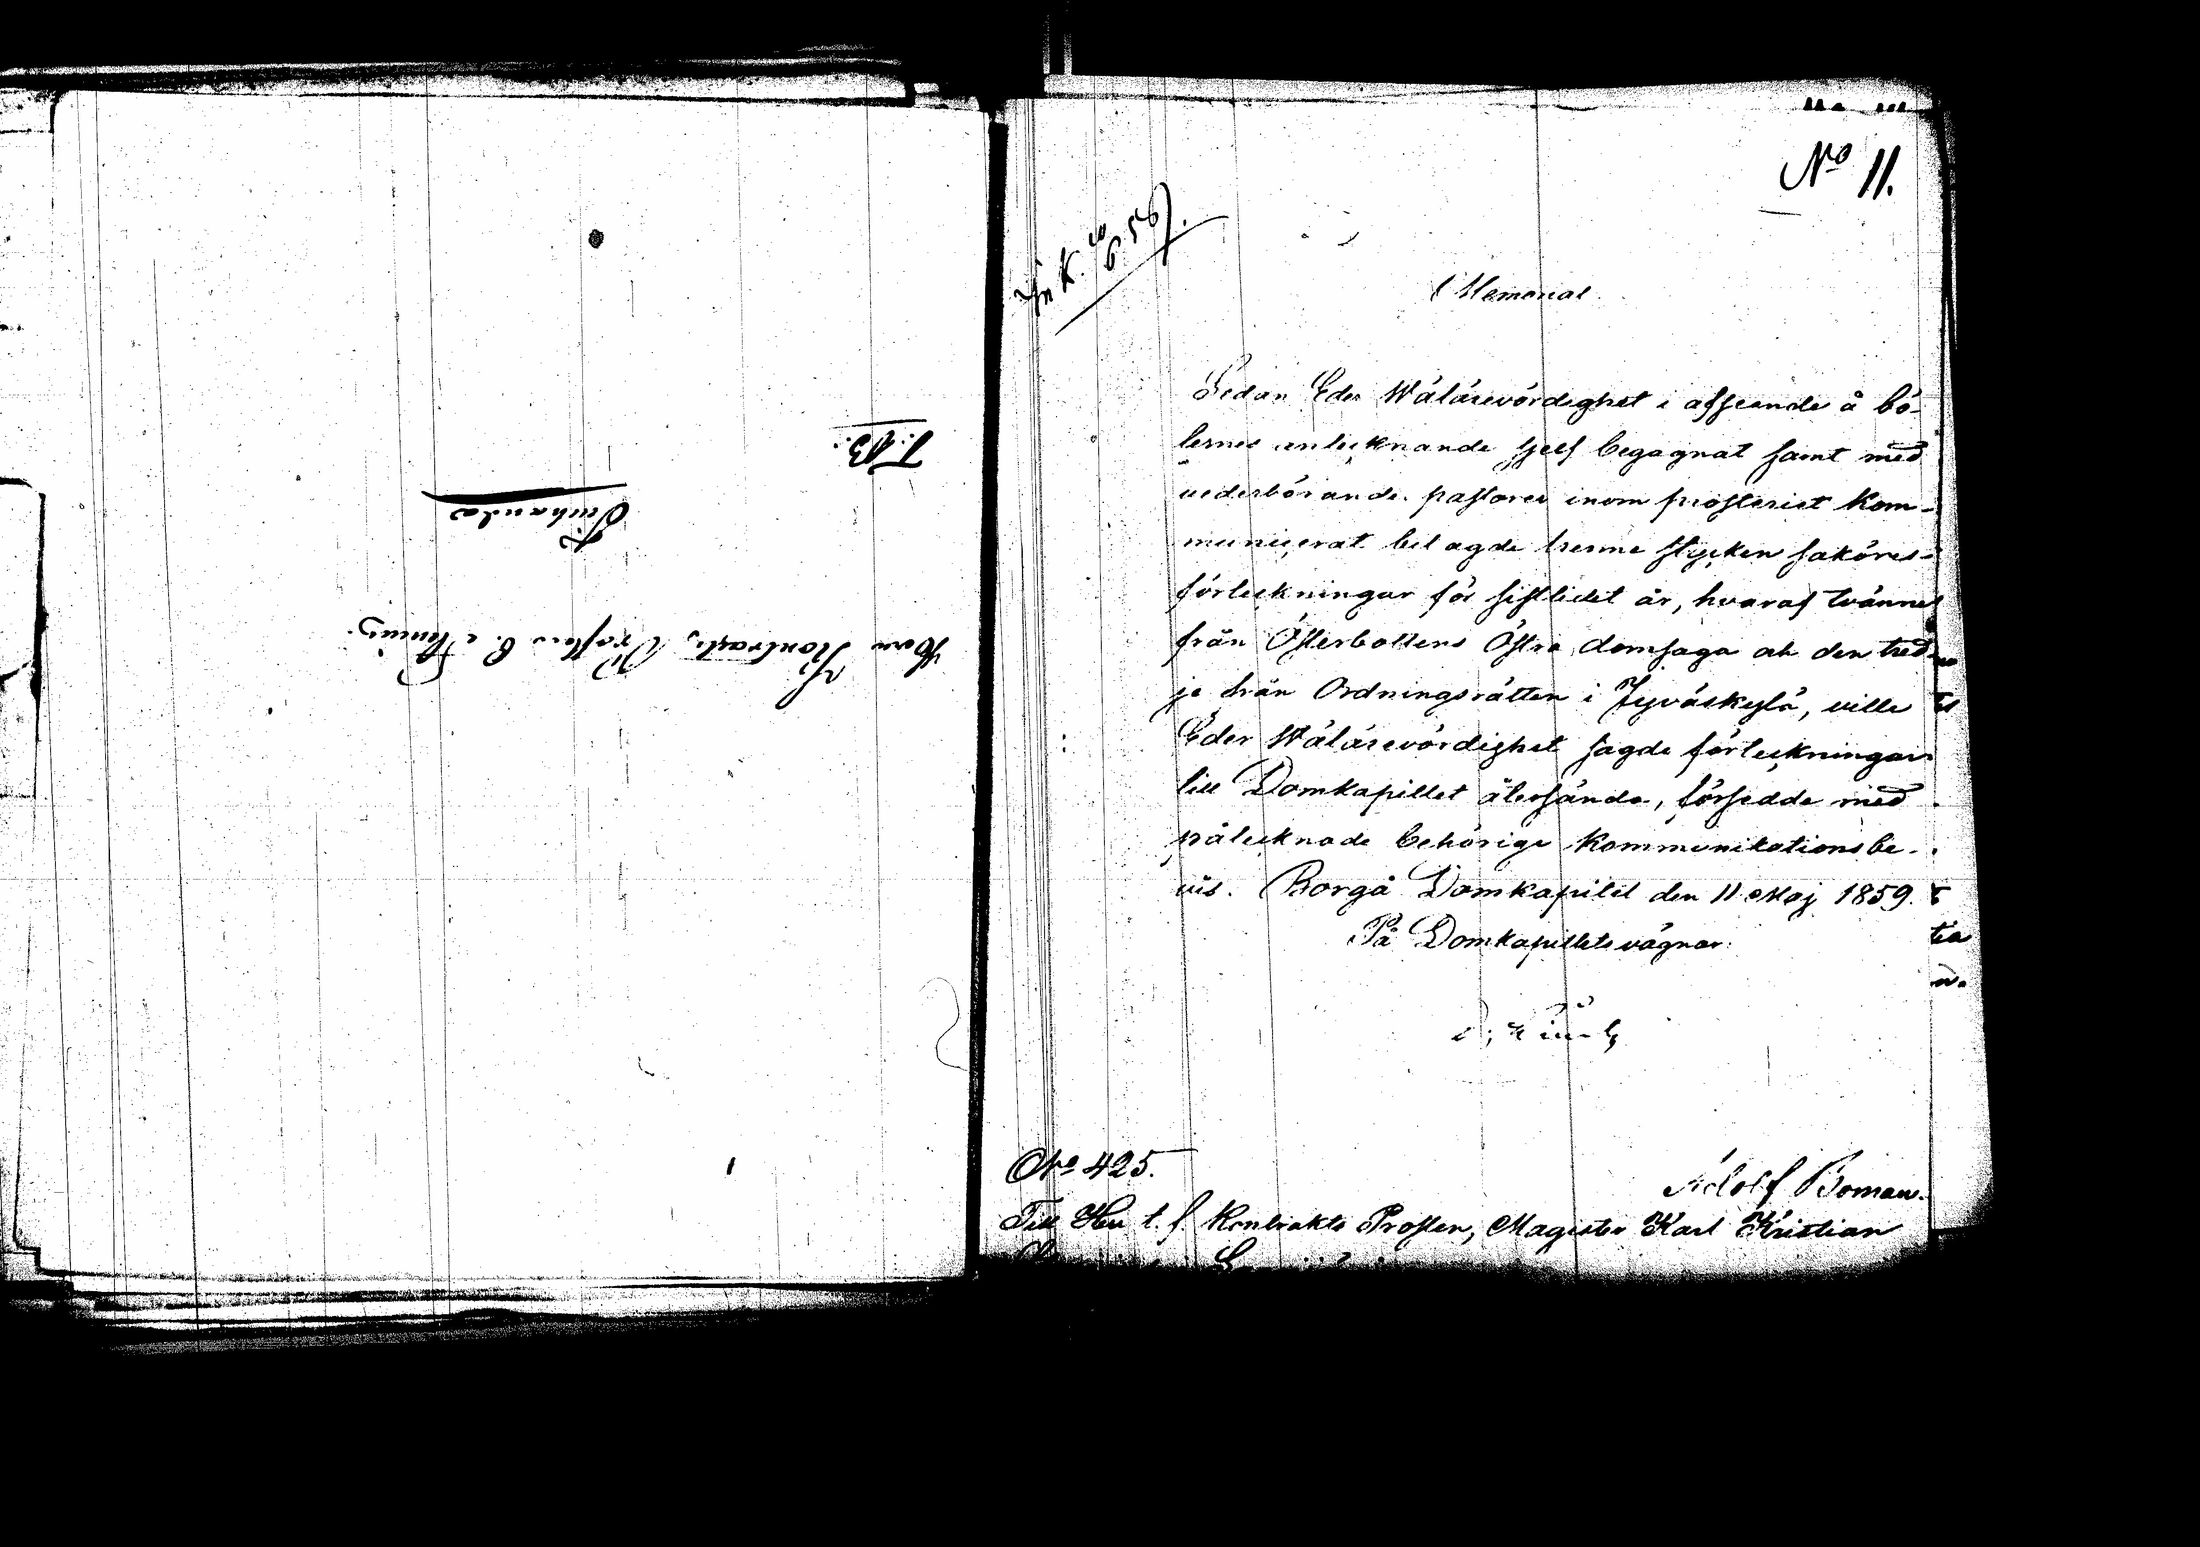 T. B.
Tuhanda
Herr Kontrakts Prosten C.
No 11.
Ink. 10/6 59.
Memorial
Sedan Eder Wälärevördighet i afseende å bö-
ternes anteknande sjelf begagnat samt med
vederbörande pastorer inom prosteriet kom-
municerat bilagde trenne stycken saköres-
förteckningar för sistlidet år, hvaraf tvänne
från Österbottens Östra domsaga och den tred-
je från Ordningsrätten i Jyväskylä, ville
Eder Wälärevördighet sagde förteckningar
till Domkapitlet återsända, försedde med
påtecknade behörige kommunikationsbe-
vis. Borgå Domkapitel den 11 Maj 1859.
På Domkapitlets vägnar:
No 425.
Adolf Boman.
Till Herr t. f. Kontrakts Prosten, Magister Karl Kristian